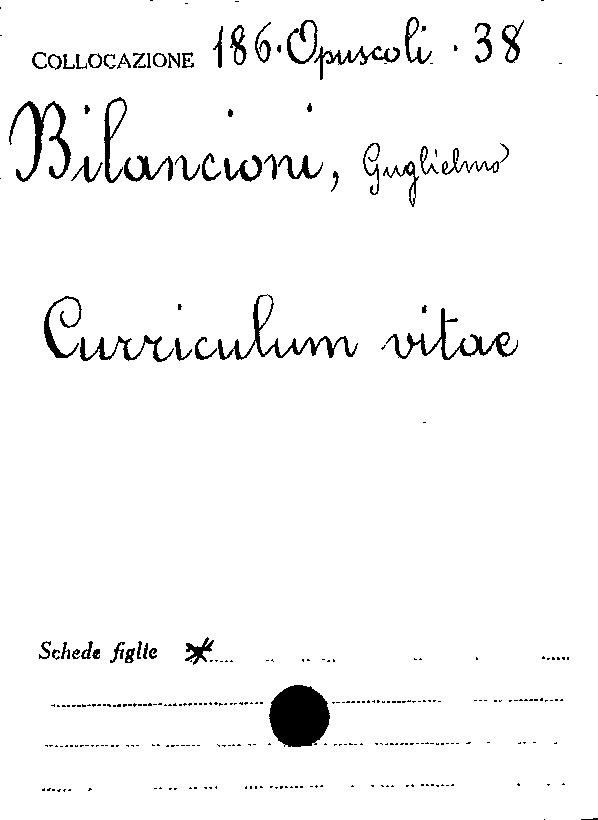 COLLOCAZIONE 186. Opuscoli. 38
Bilancioni, Guglielmo
Curriculum vitae
Schede figlie